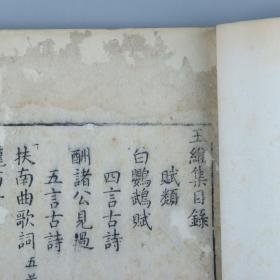 王維集目錄
賦類
白鸚鵡賦
四言古詩
酬諸公見過
五言古詩
扶南曲歌詞五首